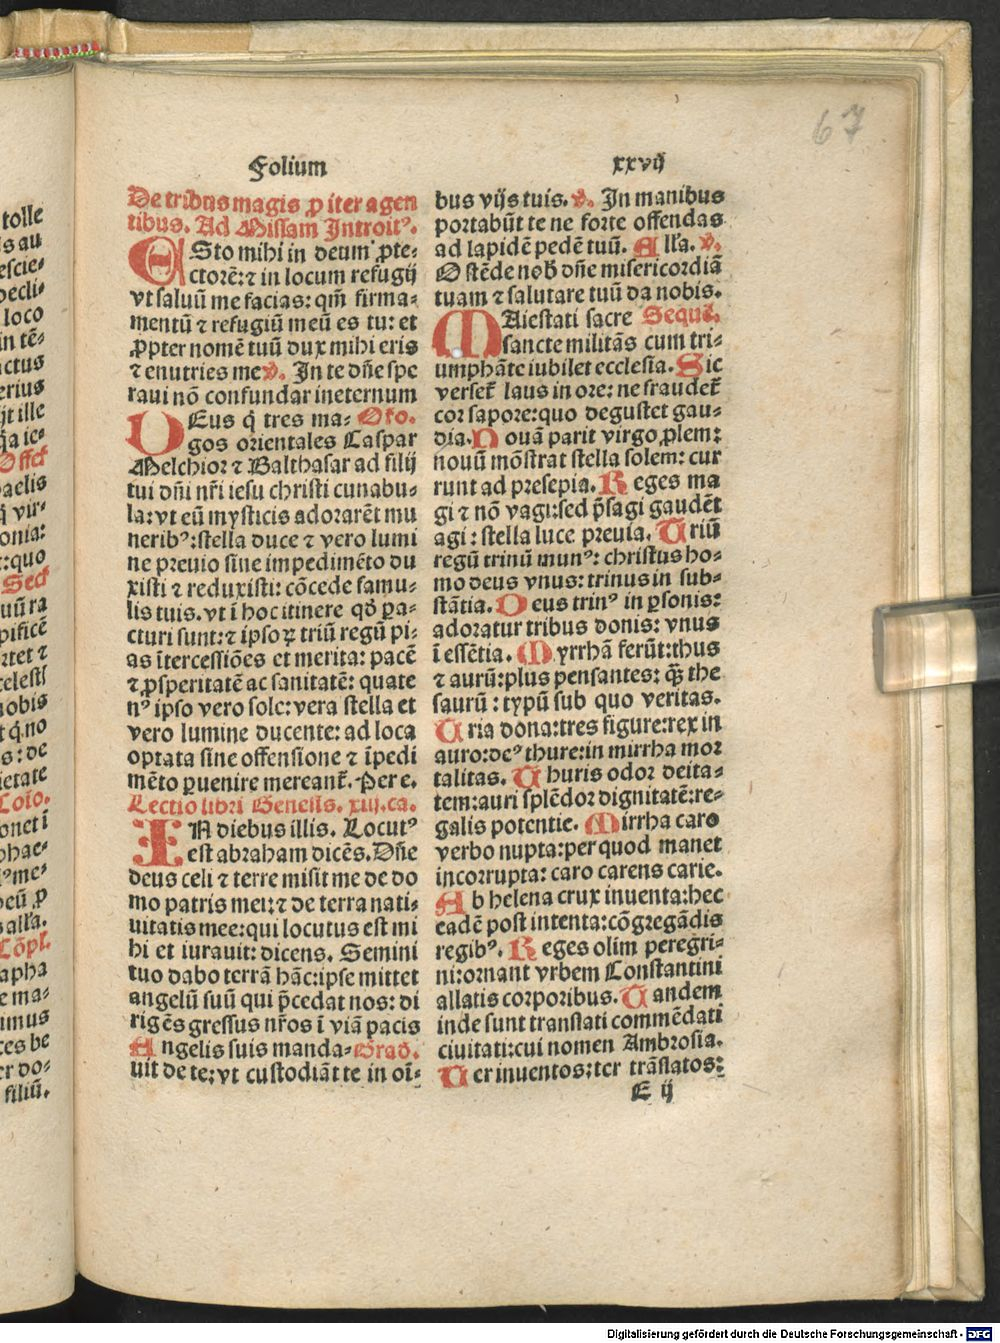 67
Folium xxvij
De tribus magis ꝓ iter agen
tibus. Ad Missam Introitꝰ.
ESto mihi in deum ꝓte-
ctorē: ⁊ in locum refugij
vt saluū me facias: qm̄ firma-
mentū ⁊ refugiū meū es tu: et
ꝓpter nomē tuū dux mihi eris
⁊ enutries me. ℣. In te dn̄e spe
raui nō confundar ineternum
DEus q̄ tres ma- Oro.
gos orientales Caspar
Melchior ⁊ Balthasar ad filij
tui dn̄i nr̄i iesu christi cunabu-
la: vt eū mysticis adorarēt mu
neribꝰ: stella duce ⁊ vero lumi
ne preuio sine impedimēto du
xisti ⁊ reduxisti: cōcede famu-
lis tuis. vt ī hoc itinere qd̄ ꝑa-
cturi sunt: ⁊ ipsoꝝ triū regū pi-
as ītercessiōes et merita: pacē
⁊ ꝓsperitatē ac sanitatē: quate
nꝰ ipso vero sole: vera stella et
vero lumine ducente: ad loca
optata sine offensione ⁊ īpedi
mēto ꝑuenire mereant̄. Per e.
Lectio libri Genesis. xiiij. ca.
IN diebus illis. Locutꝰ
est abraham dicēs. Dn̄e
deus celi ⁊ terre misit me de do
mo patris mei: ⁊ de terra nati-
uitatis mee: qui locutus est mi
hi et iurauit: dicens. Semini
tuo dabo terrā hāc: ipse mittet
angelū suū qui p̄cedat nos: di
rigēs gressus nr̄os ī viā pacis
Angelis suis manda- Grad.
uit de te: vt custodiāt te in oī-
bus vijs tuis. ℣. In manibus
portabūt te ne forte offendas
ad lapidē pedē tuū. All'a. ℣.
Ostēde nob̄ dn̄e misericordiā
tuam ⁊ salutare tuū da nobis.
MAiestati sacre Sequē.
sancte militās cum tri-
umphāte iubilet ecclesia. Sic
verset̄ laus in ore: ne fraudet̄
cor sapore: quo degustet gau-
dia. Nouā parit virgo ꝓlem:
nouū mōstrat stella solem: cur
runt ad presepia. Reges ma
gi ⁊ nō vagi: sed p̄sagi gaudēt
agi: stella luce preuia. Triū
regū trinū munꝰ: christus ho-
mo deus vnus: trinus in sub-
stātia. Deus trinꝰ in ꝑsonis:
adoratur tribus donis: vnus
ī essētia. Myrrhā ferūt: thus
⁊ aurū: plus pensantes: qȝ the
saurū: typū sub quo veritas.
Tria dona: tres figure: rex in
auro: deꝰ thure: in mirrha mor
talitas. Thuris odor deita-
tem: auri splēdor dignitatē: re-
galis potentie. Mirrha caro
verbo nupta: per quod manet
incorrupta: caro carens carie.
Ab helena crux inuenta: hec
eadē post intenta: cōgregādis
regibꝰ. Reges olim peregri-
ni: ornant vrbem Constantini
allatis corporibus. Tandem
inde sunt translati commēdati
ciuitati: cui nomen Ambrosia.
Ter inuentos: ter trāslatos:
E ij
tolle
s au
escie-
decli-
loco
in tē-
ctus
erius
ijt ille
q̄a ie-
Offet̄
aelis
q̄ vir-
onia:
:quo
Secr̄
uū ra
pificē
rtet ⁊
celesti
nobis
t q̄ no
s: de
ietate
Colo.
onet ī
phae-
lꝰ me'
peū ꝓ
all'a.
Cōpl.
apha
e ma-
imus
ces be
er do-
filiū.
Digitalisierung gefördert durch die Deutsche Forschungsgemeinschaft - DFG